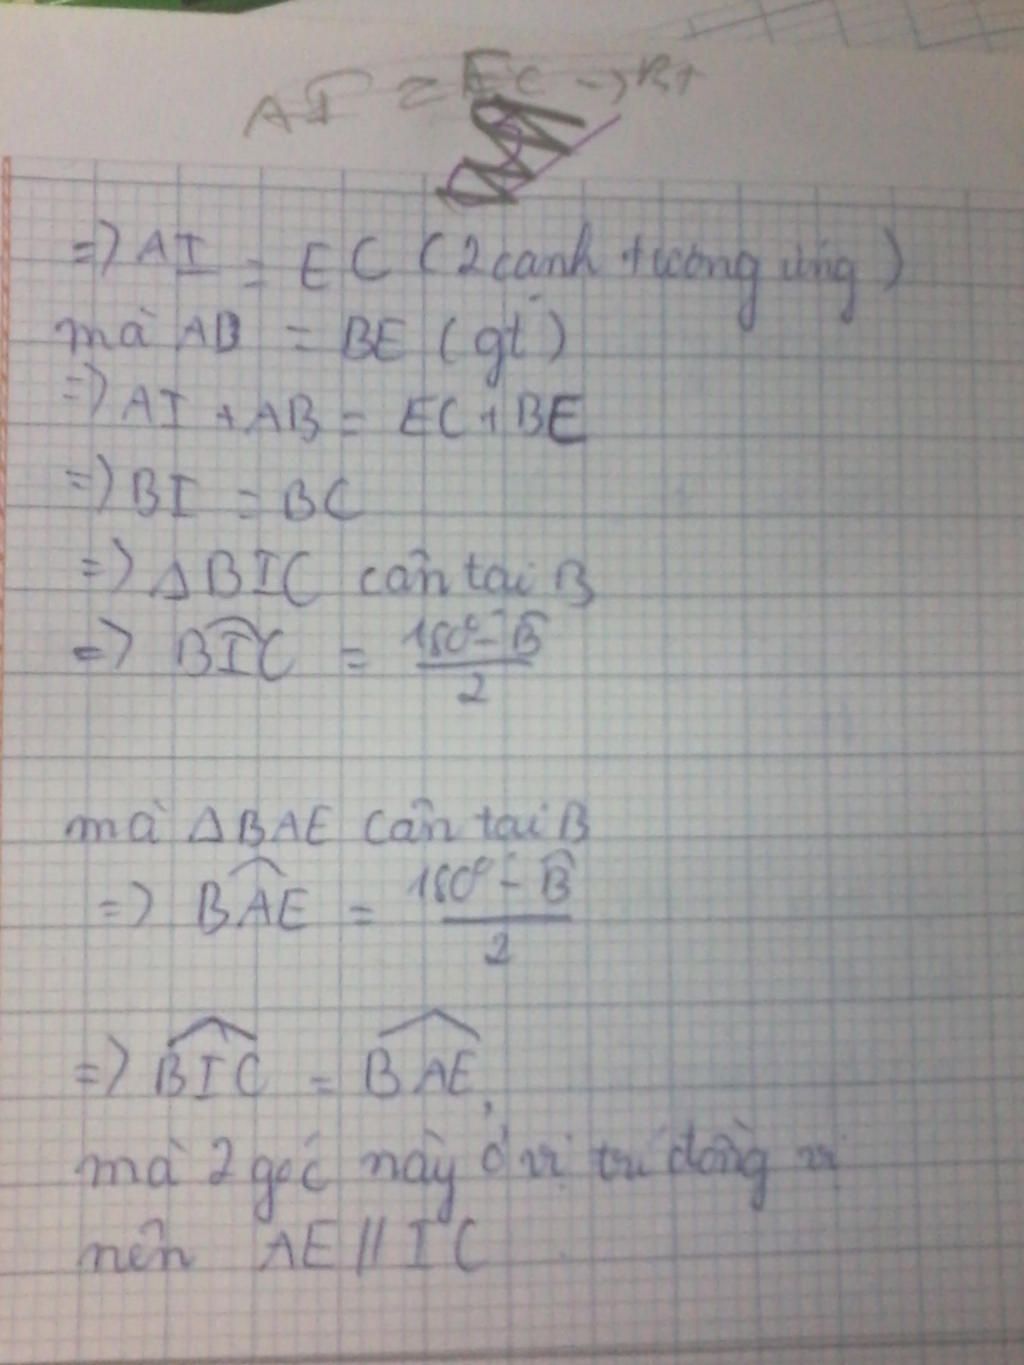 AI = EC →
=> AI = EC (2 cạnh tương ứng)
mà AB = BE (gt)
=> AI + AB = EC + BE
=> BI = BC
=> ΔBIC cân tại B
=> BIC^ = (180° - B^)/2
mà ΔBAE cân tại B
=> BAE^ = (180° - B^)/2
=> BIC^ = BAE^,
mà 2 góc này ở vị trí đồng vị
nên AE // IC